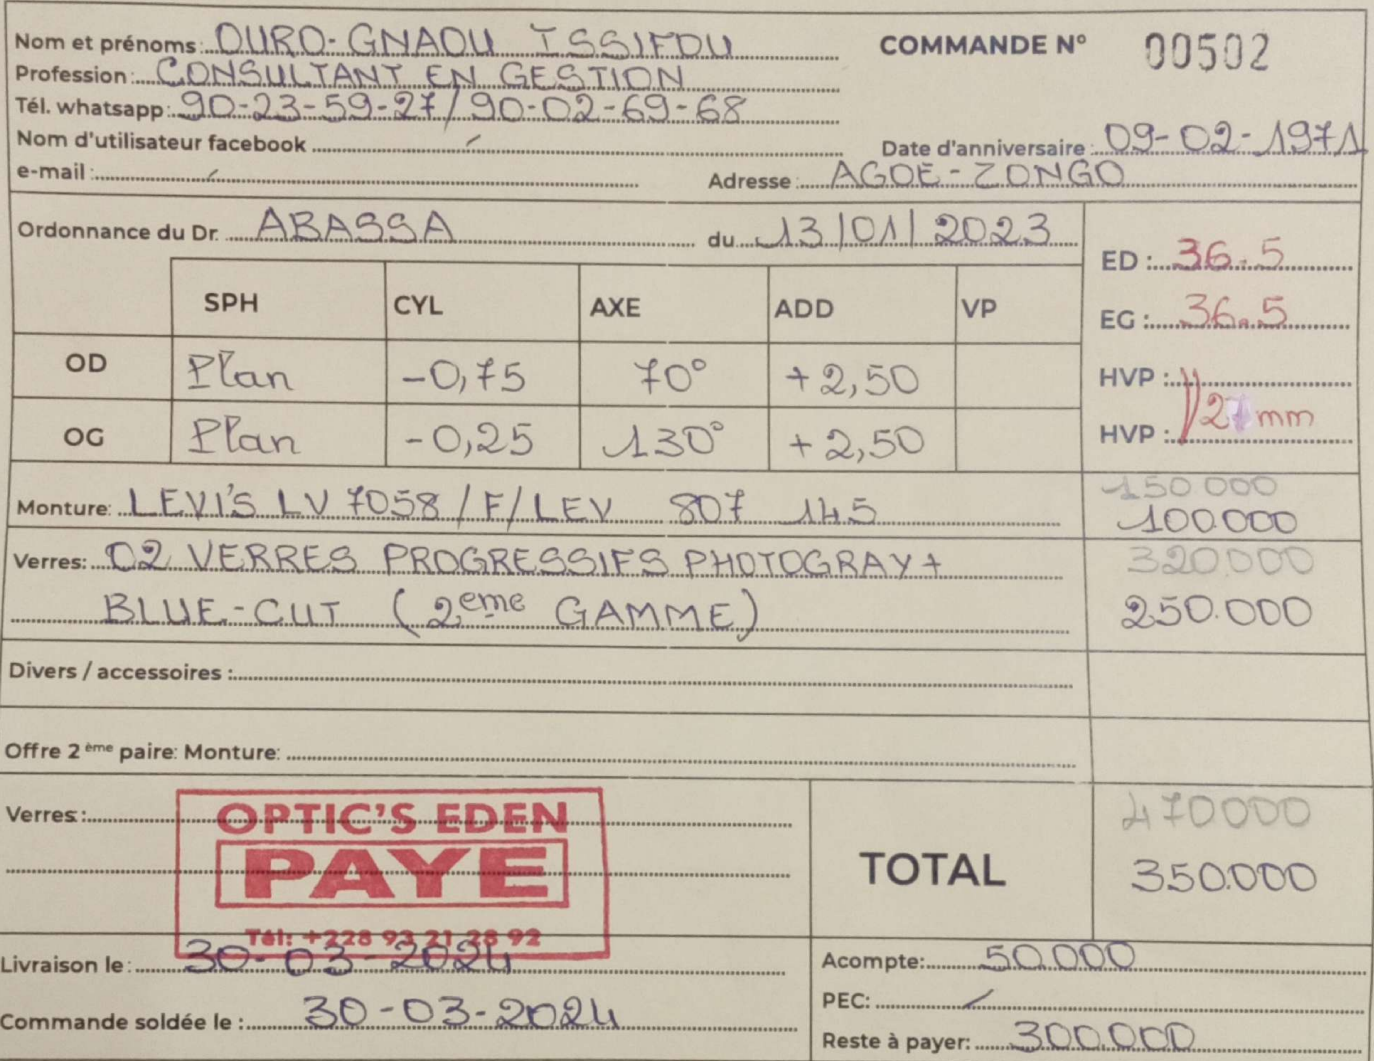 Nom et prénoms: OURO-GNAOU ISSIFOU
COMMANDE N° 00502
Profession: CONSULTANT EN GESTION
Tél. whatsapp: 90-23-59-27/90-02-69-68
Nom d'utilisateur facebook /
Date d'anniversaire: 09-02-1971
e-mail: /
Adresse: AGOE-ZONGO
Ordonnance du Dr. ABASSA du 13/01/2023
ED: 36.5
SPH CYL AXE ADD VP
EG: 36.5
OD Plan -0,75 70° +2,50
HVP:
OG Plan -0,25 130° +2,50
HVP: mm
Monture: LEVI'S LV 7058/F/LEV 807 145
150 000
100.000
Verres: 02 VERRES PROGRESSIFS PHOTOGRAY+
320.000
BLUE-CUT (2eme GAMME)
250.000
Divers / accessoires :
Offre 2 ème paire: Monture:
Verres:
OPTIC'S EDEN
PAYE
Tél: +228 93 21 28 92
TOTAL
470000
350.000
Livraison le: 30-03-2024
Acompte: 50.000
PEC: /
Commande soldée le : 30-03-2024
Reste à payer: 300.000